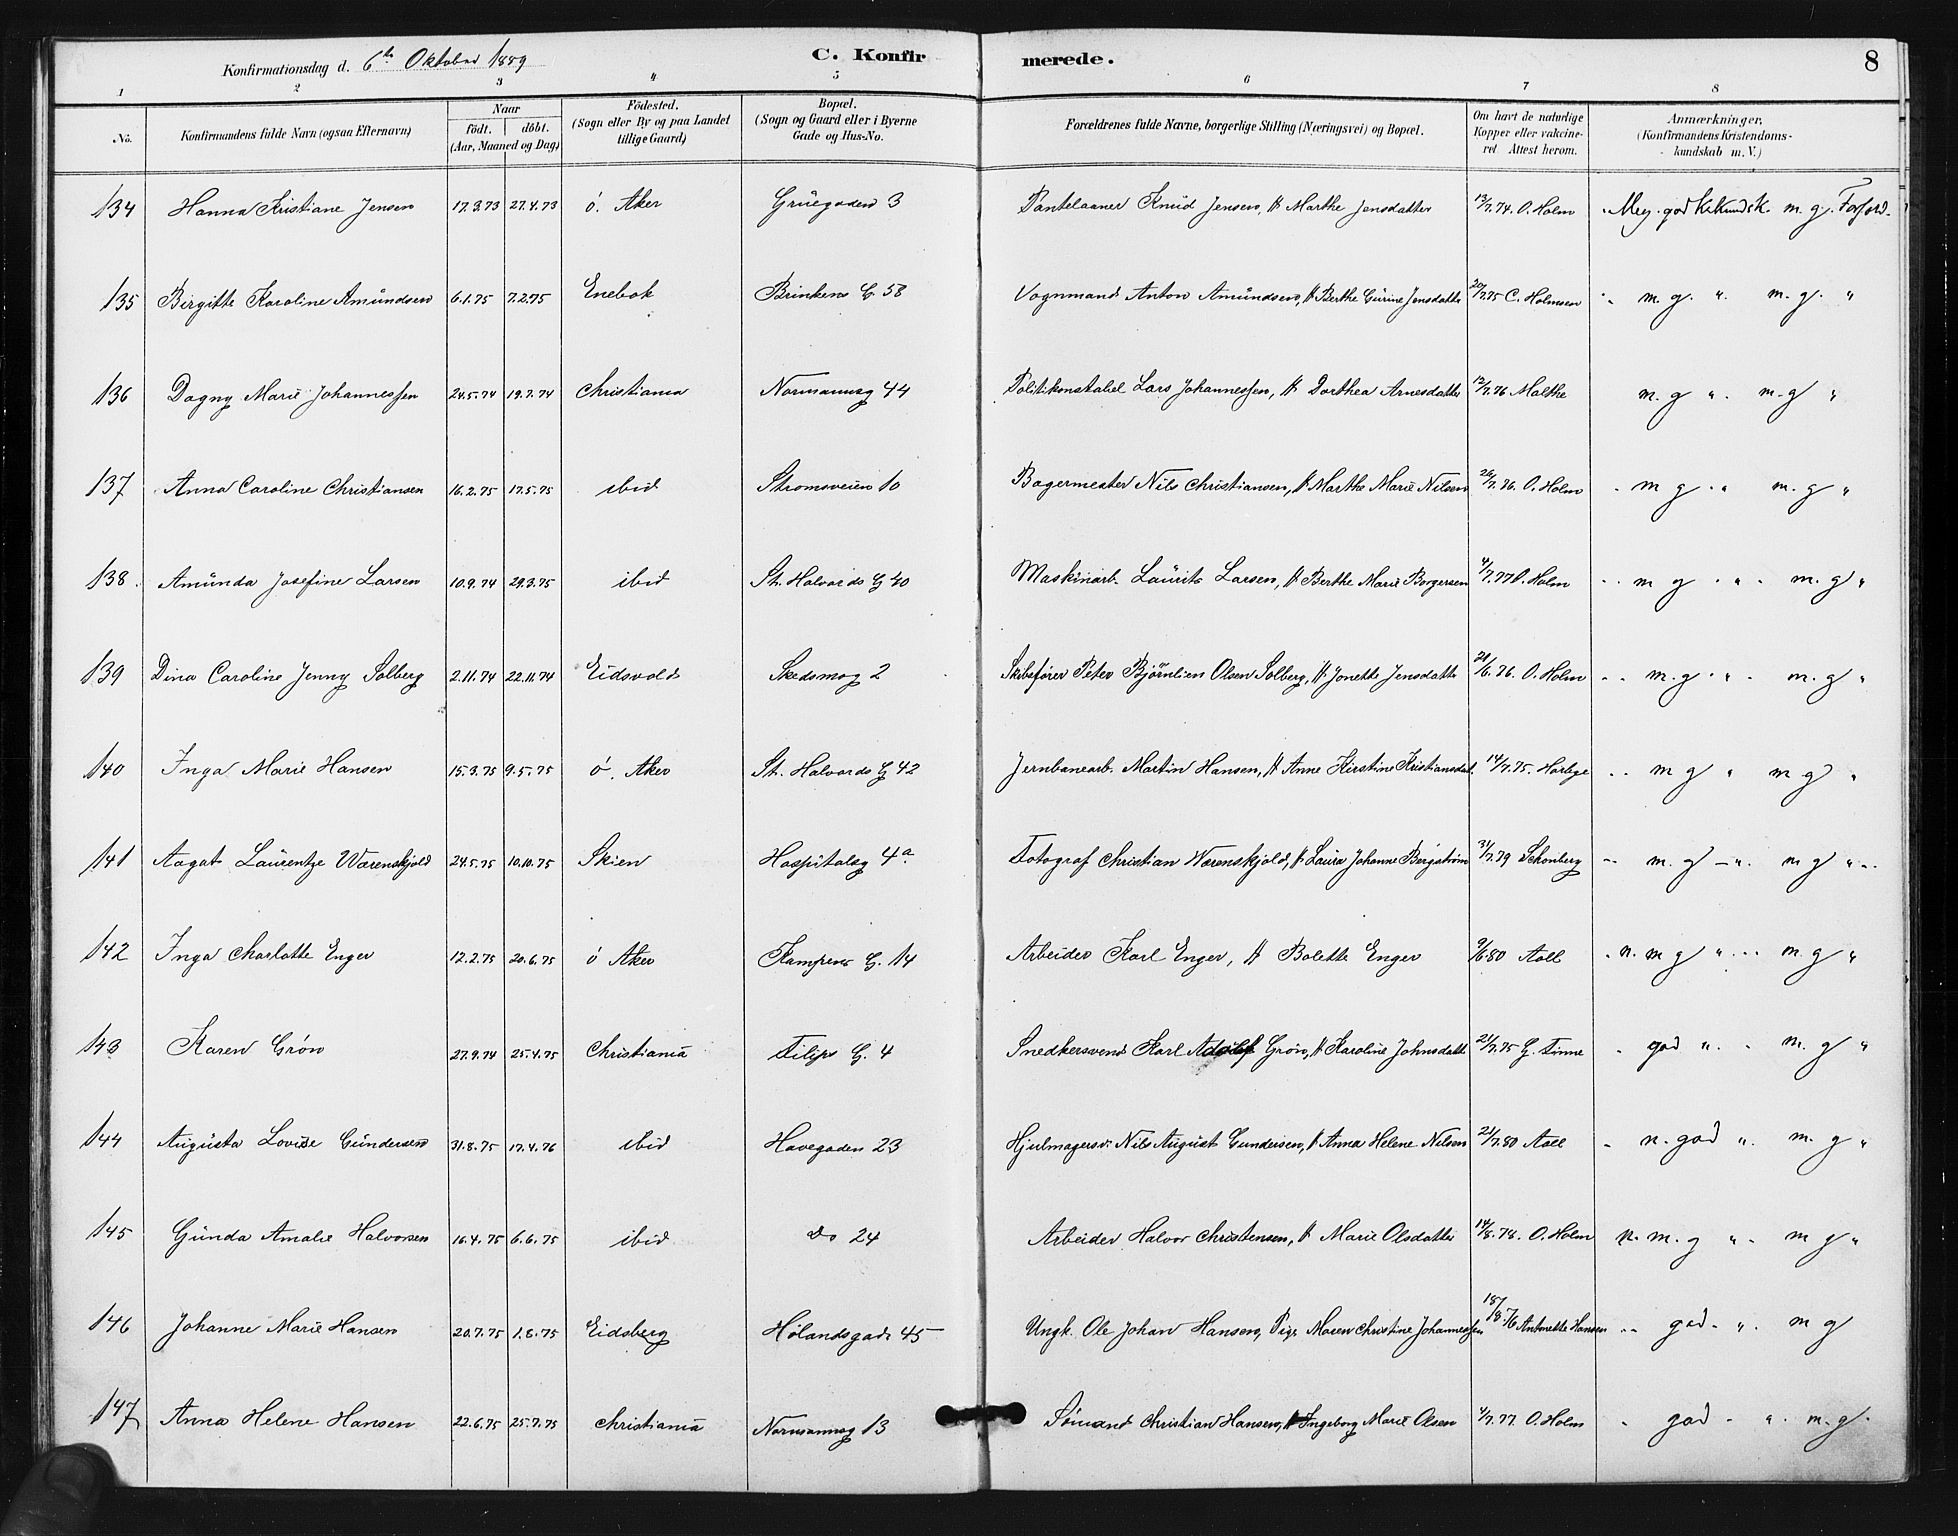 Konfirmationsdag d. 6te Oktober 1889 C. Konfirmerede. 8
1 2 3 4 5 6 7 8
No. Konfirmandens fulde Navn (ogsaa Efternavn) Naar födt. döbt. (Aar, Maaned og Dag) Födested. (Sogn eller By og paa Landet tillige Gaard) Bopæl. (Sogn og Gaard eller i Byerne Gade og Hus-No. Forældrenes fulde Navne, borgerlige Stilling (Næringsvei) og Bopæl. Om havt de naturlige Kopper eller vakcineret Attest herom. Anmærkninger, (Konfirmandens Kristendomskundskab m. V.)
134 Hanna Kristiane Jensen 17.3.73 27.4.73 ö. Aker Grüegaden 3 Pantelaaner Knud Jensen, H Marthe Jensdatter 13/7.74. O. Holm Meg. god Kr.kundsk. m. g. Forhold
135 Birgitte Karoline Amündsen 6.1.75 7.2.75 Enebak Brinkens G. 58 Vognmand Anton Amündsen, H Berthe Gürine Jensdatter 20/7.75 C. Holmsen m. g. " m. g. "
136 Dagny Marie Johannessen 24.5.74 19.7.74 Christiania Normanng 44 Politikonstabel Lars Johannessen, H Dorthea Arnesdatter 12/7.76 Malthe m. g " m. g "
137 Anna Caroline Christiansen 16.2.75 17.5.75 ibid Strømsveien 10 Bagermester Nils Christiansen, H Marthe Marie Nilsen 26/7.76. O. Holm m g " m. g "
138. Amünda Josefine Larsen 10.9.74 29.3.75 ibid St. Halvards G 40 Maskinarb. Laürits Larsen, H Berthe Marie Borgersen 4/7.77 O. Holm m g " m. g "
139 Dina Caroline Jenny Solberg 2.11.74 22.11.74 Eidsvold Skedsmog 2 Skibsfører Peter Bjørnlien Olsen Solberg, H Jonette Jensdatter 28/6.76. O. Holm m. g " m. g "
140 Inga Marie Hansen 15.3.75 9.5.75 ö. Aker St. Halvards G 42 Jernbanearb. Martin Hansen, H Anne Kirstine Kristiansdat. 14/7.75. Harbye m g " m g "
141 Aagat Laurentze Wærenskjold 24.5.75 10.10.75 Skien Hospitalsg 4a Fotograf Christian Wærenskjold, H Laura Johanne Bergstrøm 31/7.79 Schønberg m. g " m g "
142 Inga Charlotte Enger 12.2.75 20.6.75 ö Aker Kampens G. 14 Arbeider Karl Enger, H Bolette Enger 9/6.80 Aall n. m g " m. g "
143 Karen Grön 27.9.74 25.4.75 Christiania Filips G. 4 Snedkersvend Karl Adolf Grön, H Karoline Johnsdatt 21/7.75 G. Finne god " m. g "
144 Augüsta Lovise Gündersen 31.8.75 17.4.76 ibid Havegaden 23 Hjulmagersv. Nils August Gundersen, H Anna Helene Nilsen 21/7.80 Aall n. god " m. g "
145 Günda Amalie Halvorsen 16.4.75 6.6.75 ibid. do 24 Arbeider Halvor Christensen, H Marie Olsdatter 14/8.78. O. Holm n. m. g " m g "
146 Johanne Marie Hansen 20.7.75 1.8.75 Eidsberg Hölandsgade 45 Ungk. Ole Johan Hansen, Pige Maren Christine Johannessen 18/8.76 Antonette Hansen god " m g
147 Anna Helene Hansen 22.6.75 25.7.75 Christiania Normanng 13 Sömand Christian Hansen, H Ingeborg Marie Olsen 4/7.77. O. Holm god " m. g.